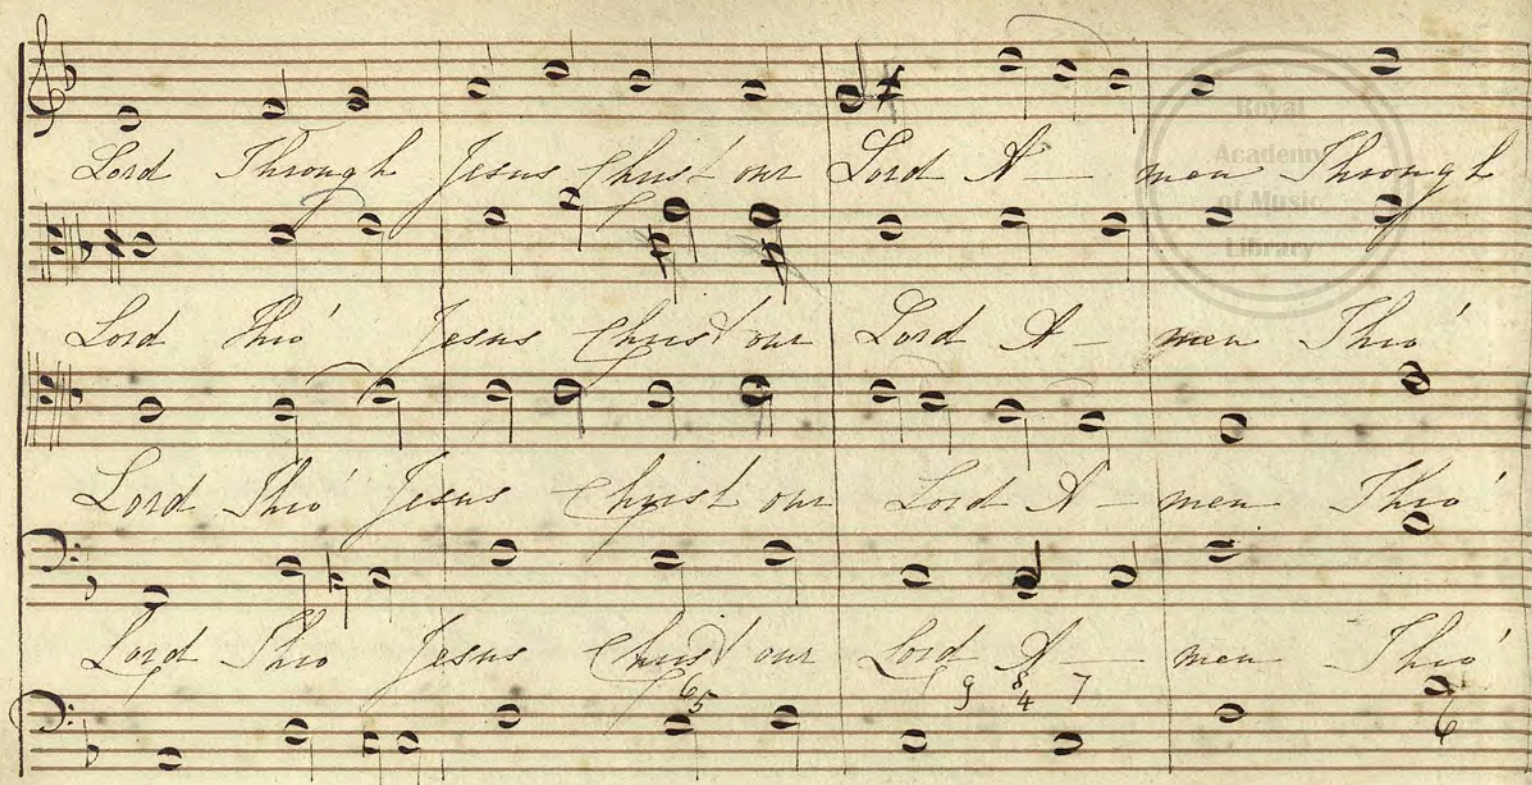 Lord Through Jesus Christ our Lord A— men Through
Royal
Academy
of Music
Library
Lord Thro' Jesus Christ our Lord A— men Thro'
Lord Thro' Jesus Christ our Lord A— men Thro'
Lord Thro Jesus Christ our Lord A— men Thro'
6 5 9 8 4 7
6